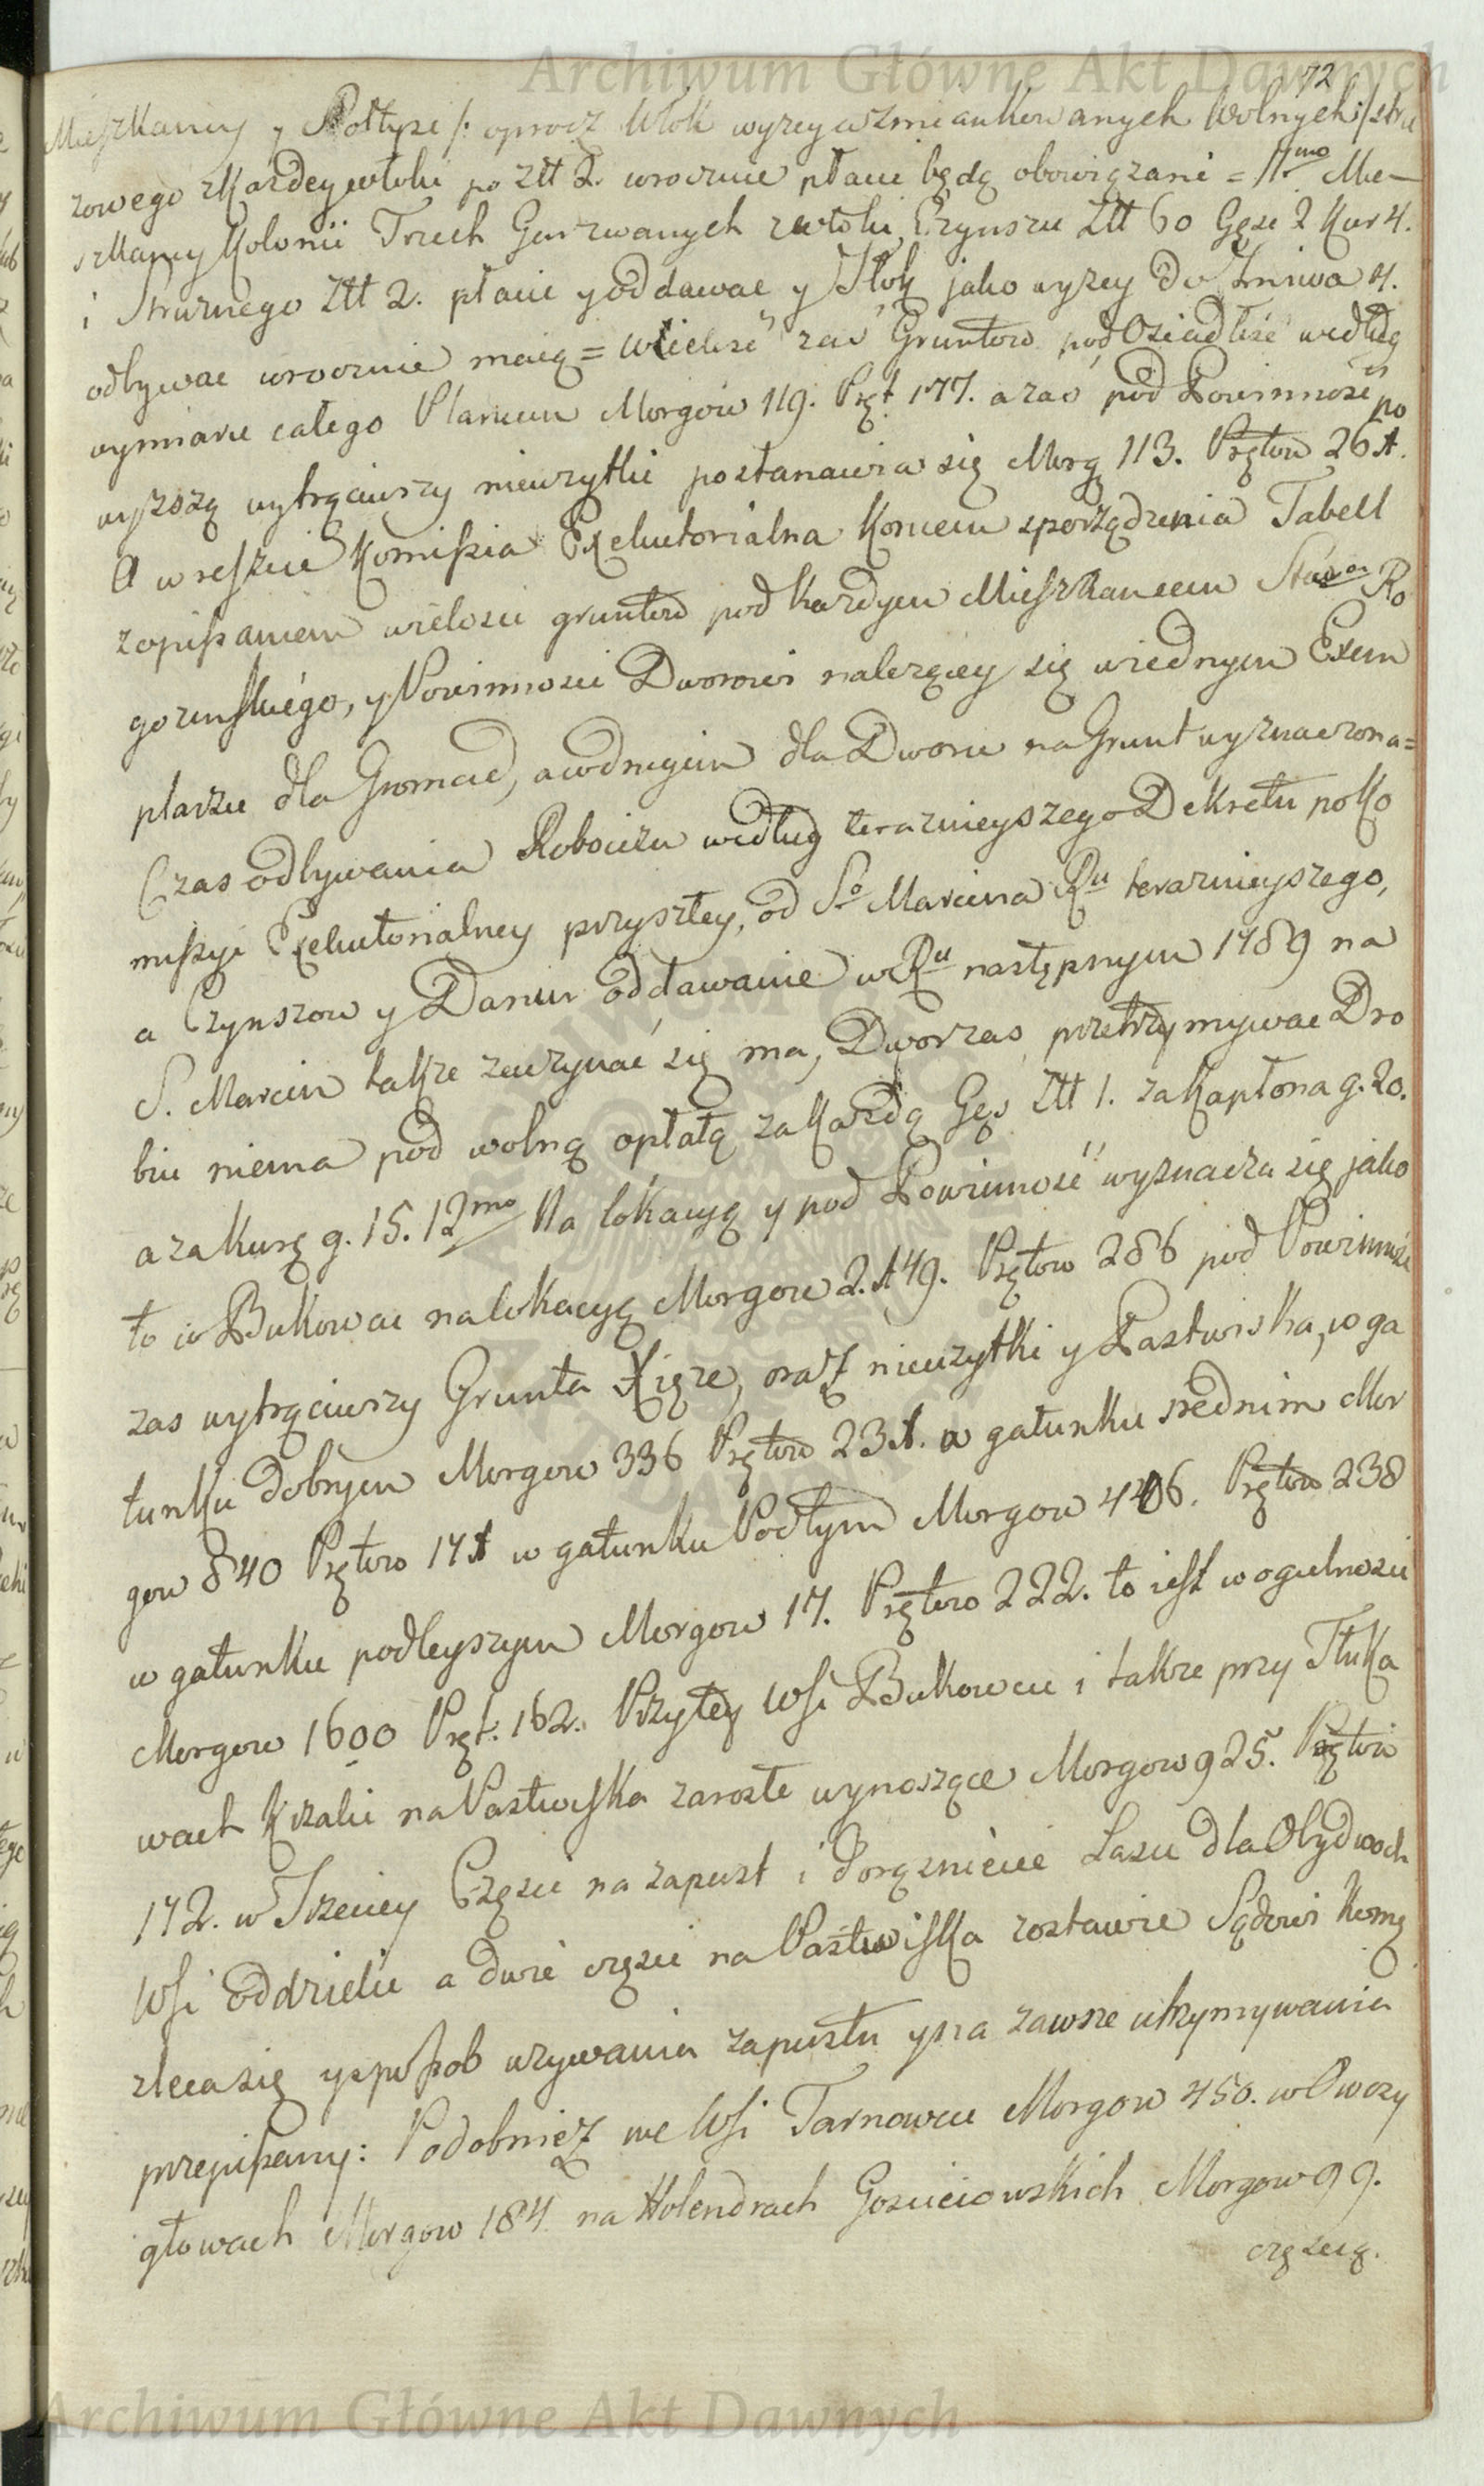 Archiwum Główne Akt Dawnych
72
Mieszkancy y Sołtysi /: oprocz Włok wyzey wzmiankowanych Wolnych :/ stru
zowego z Kazdey włoki po Złł 2. wrocznie płacic będą obowiązani = 11mo Mie-
szkancy Kolonii Trzech Gurzwanych z włoki Czynszu Złł 60 Gęsi 2 Kur 4.
i Struznego Złł 2. płacic y oddawac y Tłok jako wyzey do Zniwa 4.
odbywac wrocznie maią = Wielosć zaś Gruntow pod Osiadlosć według
wymiaru całego Planum Morgów 119. Pręt. 177. a zas pod Powinność po
wyzszą wytrąciwszy nieuzytki postanawia się Morg 113. Prętow 261.
A wreszcie Komissia Exekutorialna Koncem sporządzenia Tabell
z opisaniem wielosci gruntow pod kazdym Mieszkancem Stawa Ro
gozinskiego, y Powinnosci Dworowi nalezącey się w iednym Exem
plarzu dla Gromad, a w drugim dla Dworu na Grunt wyznaczona =
Czas odbywania Robocizn według terazniejszego Dekretu po Ko
missyi Exekutorialney przyszłey, od So Marcina Ru terazniejszego,
a Czynszow y Danin oddawanie w Ru następnym 1789 na
S. Marcin takze zaczynać się ma, Dwor zas przetrzymywac Dro
biu niema pod wolną opłatą za Kazdą Gęs Złł 1. za Kapłona g. 20.
a za Kurę g. 15. 12mo Na lokacyą y pod Powinność wyznacza się jako
to w Bukowcu na lokacyą Morgow 2.149. Prętow 286 pod Powinność
zas wytrąciwszy Grunta Xięze, oraz nieuzytki y Pastwiska, w ga
tunku dobrym Morgow 336 Prętow 231. w gatunku srednim Mor
gow 840 Prętow 171 w gatunku Podłym Morgow 406. Prętow 238
w gatunku podleyszym Morgow 17. Prętow 222. to iest w ogulnosci
Morgow 1600 Pręt. 162. Przy tey Wsi Bukowcu i takze przy Tłuka
wach Krzaki na Pastwiska zarosłe wynoszące Morgow 925. Prętow
172. w Trzeciey Części na zapust i Porąznięcie Lasu dla Obydwoch
Wsi oddzielic a dwie częsci na Pastwiska zostawic Sądowi Komp
zleca się y sposob uzywania zapustu y na zawsze utrzymywania
przepisany: Podobniez we Wsi Tarnowcu Morgow 450. w Owczy
głowach Morgow 184 na Holendrach Gosciciowskich Morgow 99.
częscią.
Archiwum Główne Akt Dawnych